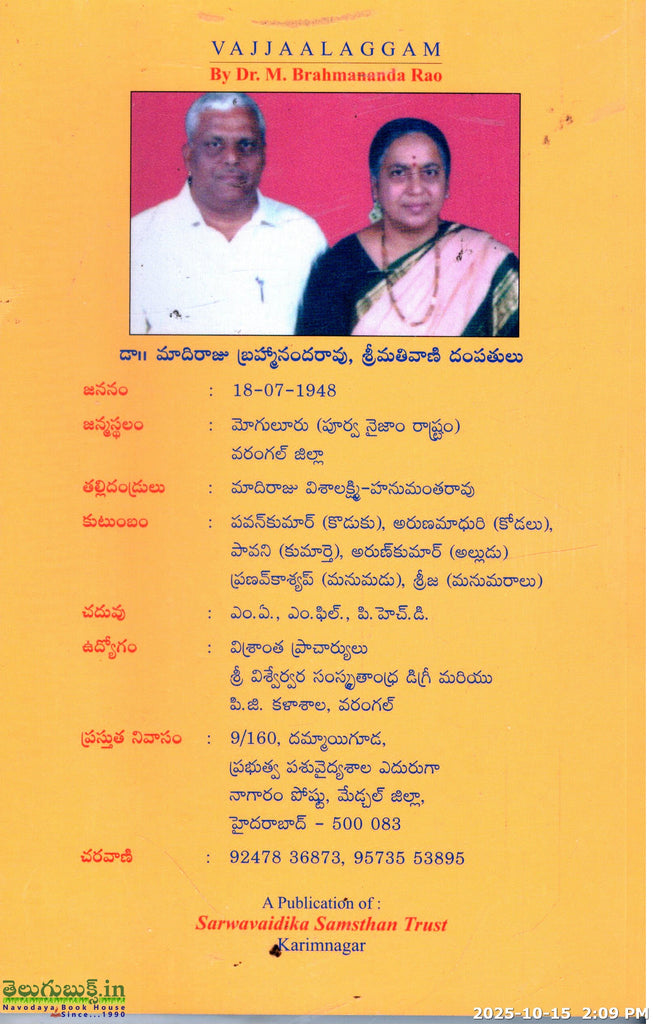 VAJJAALAGGAM
By Dr. M. Brahmananda Rao
డా॥ మాదిరాజు బ్రహ్మానందరావు, శ్రీమతివాణి దంపతులు
జననం : 18-07-1948
జన్మస్థలం : మోగులూరు (పూర్వ నైజాం రాష్ట్రం)
వరంగల్ జిల్లా
తల్లిదండ్రులు : మాదిరాజు విశాలక్ష్మి-హనుమంతరావు
కుటుంబం : పవన్‌కుమార్ (కొడుకు), అరుణమాధురి (కోడలు),
పావని (కుమార్తె), అరుణ్‌కుమార్ (అల్లుడు)
ప్రణవ్‌కాశ్యప్ (మనుమడు), శ్రీజ (మనుమరాలు)
చదువు : ఎం.ఏ., ఎం.ఫిల్., పి.హెచ్.డి.
ఉద్యోగం : విశ్రాంత ప్రాచార్యులు
శ్రీ విశ్వేర్వర సంస్కృతాంధ్ర డిగ్రీ మరియు
పి.జి. కళాశాల, వరంగల్
ప్రస్తుత నివాసం : 9/160, దమ్మాయిగూడ,
ప్రభుత్వ పశువైద్యశాల ఎదురుగా
నాగారం పోష్టు, మేడ్చల్ జిల్లా,
హైదరాబాద్ - 500 083
చరవాణి : 92478 36873, 95735 53895
A Publication of :
Sarwavaidika Samsthan Trust
Karimnagar
తెలుగుబుక్స్.in
Navodaya Book House
Since...1990
2025-10-15 2:09 PM